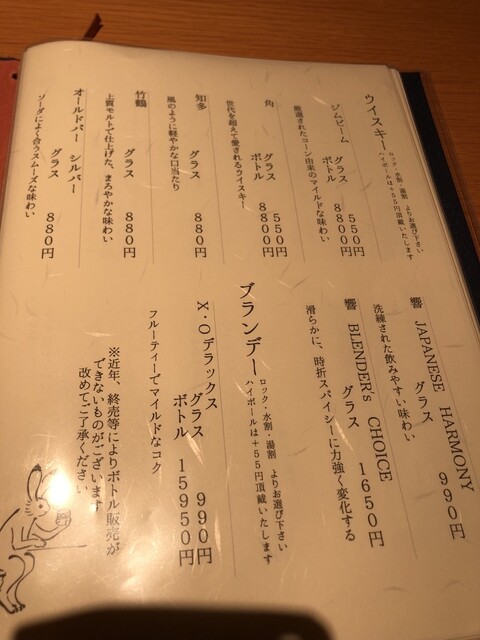 ウイスキー
ロック・水割・湯割 よりお選び下さい
ハイボールは＋55円頂戴いたします
ジムビーム
グラス 550円
ボトル 8800円
厳選されたコーン由来のマイルドな味わい
角
グラス 550円
ボトル 8800円
世代を超えて愛されるウイスキー
知多
グラス 880円
風のように軽やかな口当たり
竹鶴
グラス 880円
上質モルトで仕上げた、まろやかな味わい
オールドパー シルバー
グラス 880円
ソーダによく合うスムーズな味わい
響 JAPANESE HARMONY
グラス 990円
洗練された飲みやすい味わい
響 BLENDER's CHOICE
グラス 1650円
滑らかに、時折スパイシーに力強く変化する
ブランデー
ロック・水割・湯割 よりお選び下さい
ハイボールは＋55円頂戴いたします
X・Oデラックス
グラス 990円
ボトル 15950円
フルーティーでマイルドなコク
※近年、終売等によりボトル販売が
できないものがございます
改めてご了承ください